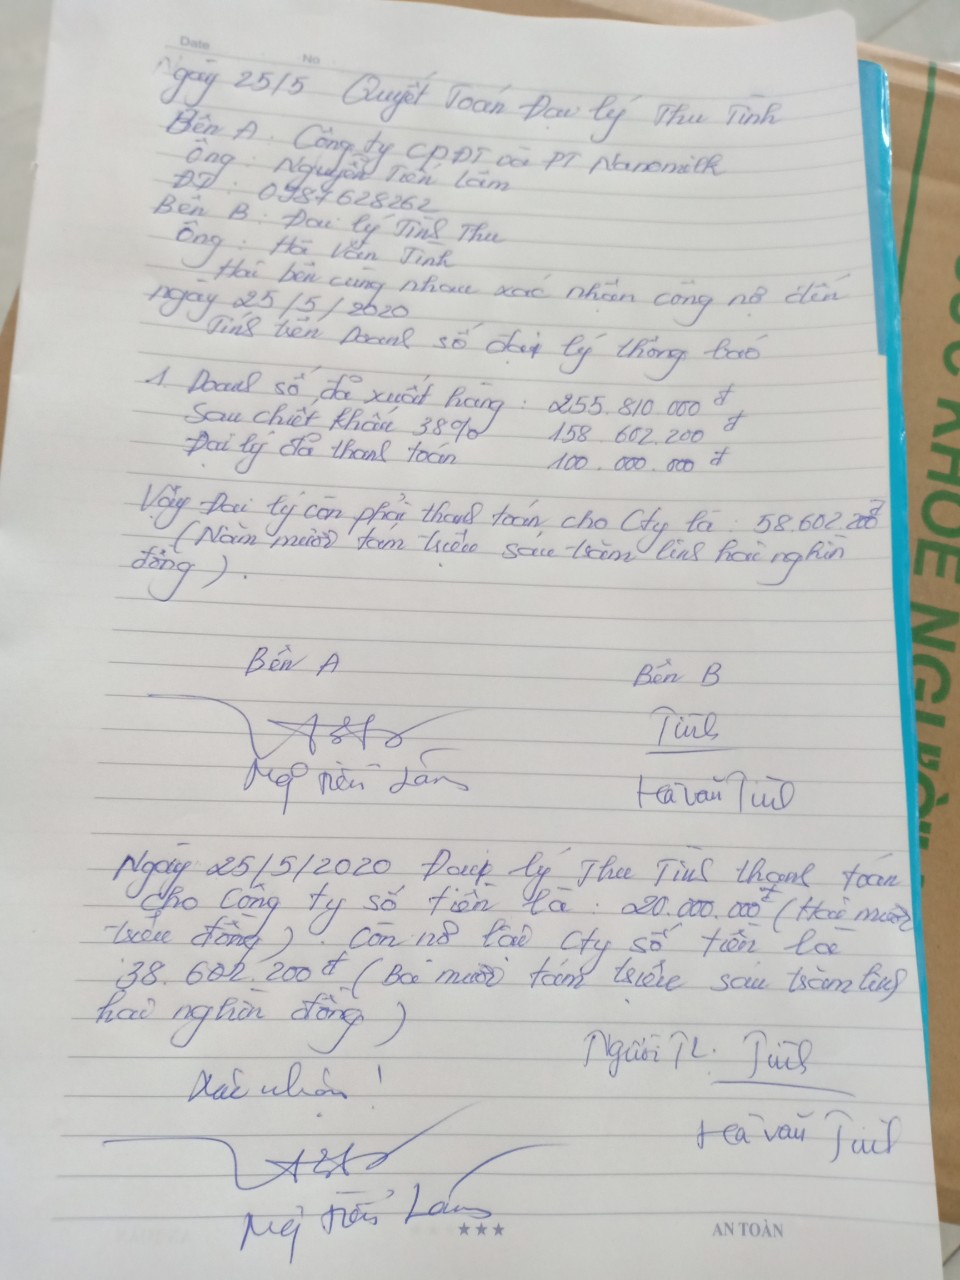 Date
No
Ngày 25/5 Quyết Toán Đại lý Thu Tình
Bên A : Công ty CPĐT và PT Nanomilk
Ông : Nguyễn Tiến Lâm
ĐT : 0987628262
Bên B : Đại lý Tình Thu
Ông : Hà Văn Tình
Hai bên cùng nhau xác nhận công nợ đến
ngày 25/5/2020
Tính tiền Doanh số đại lý thông báo
1. Doanh số đã xuất hàng : 255.810.000 đ
Sau chiết khấu 38% 158.602.200 đ
Đại lý đã thanh toán 100.000.000 đ
Vậy Đại lý còn phải thanh toán cho Cty là : 58.602.200đ
(Năm mươi tám triệu sáu trăm linh hai nghìn
đồng).
Bên A
Bên B
Tình
Ng Tiến Lâm
Hà Văn Tình
Ngày 25/5/2020 Đại lý Thu Tình thanh toán
cho Công ty số tiền là : 20.000.000đ (Hai mươi
triệu đồng). Còn nợ lại Cty số tiền là
38.602.200đ (Ba mươi tám triệu sáu trăm linh
hai nghìn đồng)
Người TL. Tình
Xác nhận !
Hà Văn Tình
Ng Tiến Lâm
★★★ AN TOÀN
SỨC KHỎE NGƯỜI